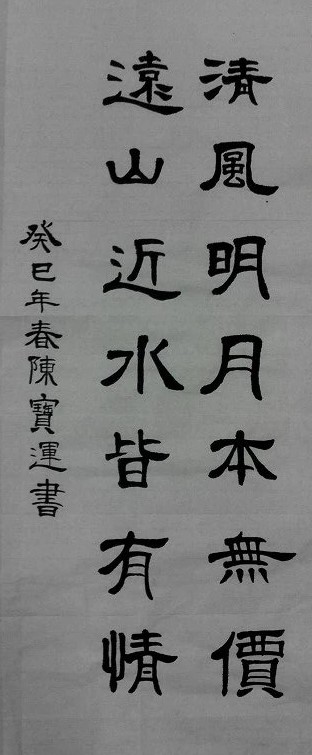 清風明月本無價
遠山近水皆有情
癸巳年春陳寶運書